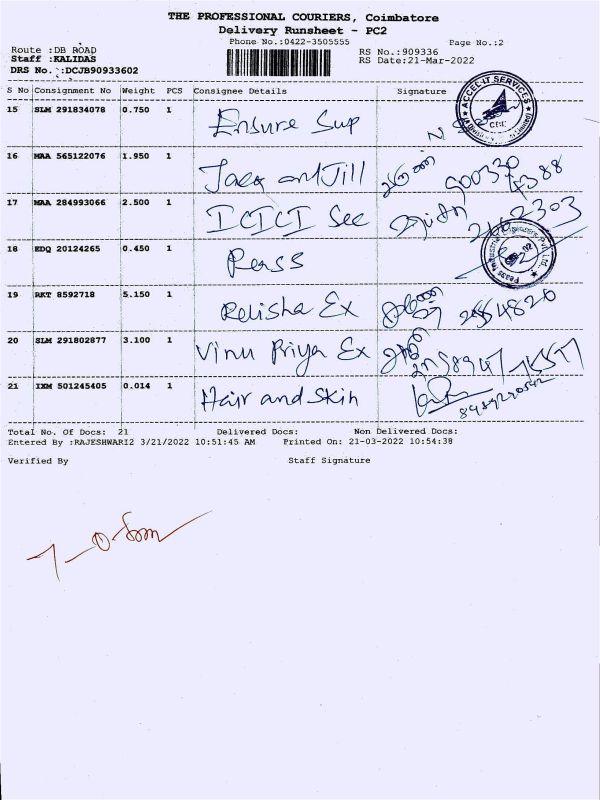 THE PROFESSIONAL COURIERS, Coimbatore
Delivery Runsheet - PC2
Phone No.:0422-3505555 Page No.:2
Route :DB ROAD RS No.:909336
Staff :KALIDAS RS Date:21-Mar-2022
DRS No. :DCJB90933602
S No Consignment No Weight PCS Consignee Details Signature
15 SLM 291834078 0.750 1 Ensure Sup
16 MAA 565122076 1.950 1 Jack and Jill
17 MAA 284993066 2.500 1 ICICI Sec
18 EDQ 20124265 0.450 1 Perss
19 RKT 8592718 5.150 1 Relisha Ex
20 SLM 291802877 3.100 1 Vinu Priya Ex
21 IXM 501245405 0.014 1 Hair and Skin
ACCEL IT SERVICES
Total No. Of Docs: 21 Delivered Docs: Non Delivered Docs:
Entered By :RAJESHWARI2 3/21/2022 10:51:45 AM Printed On: 21-03-2022 10:54:38
Verified By Staff Signature